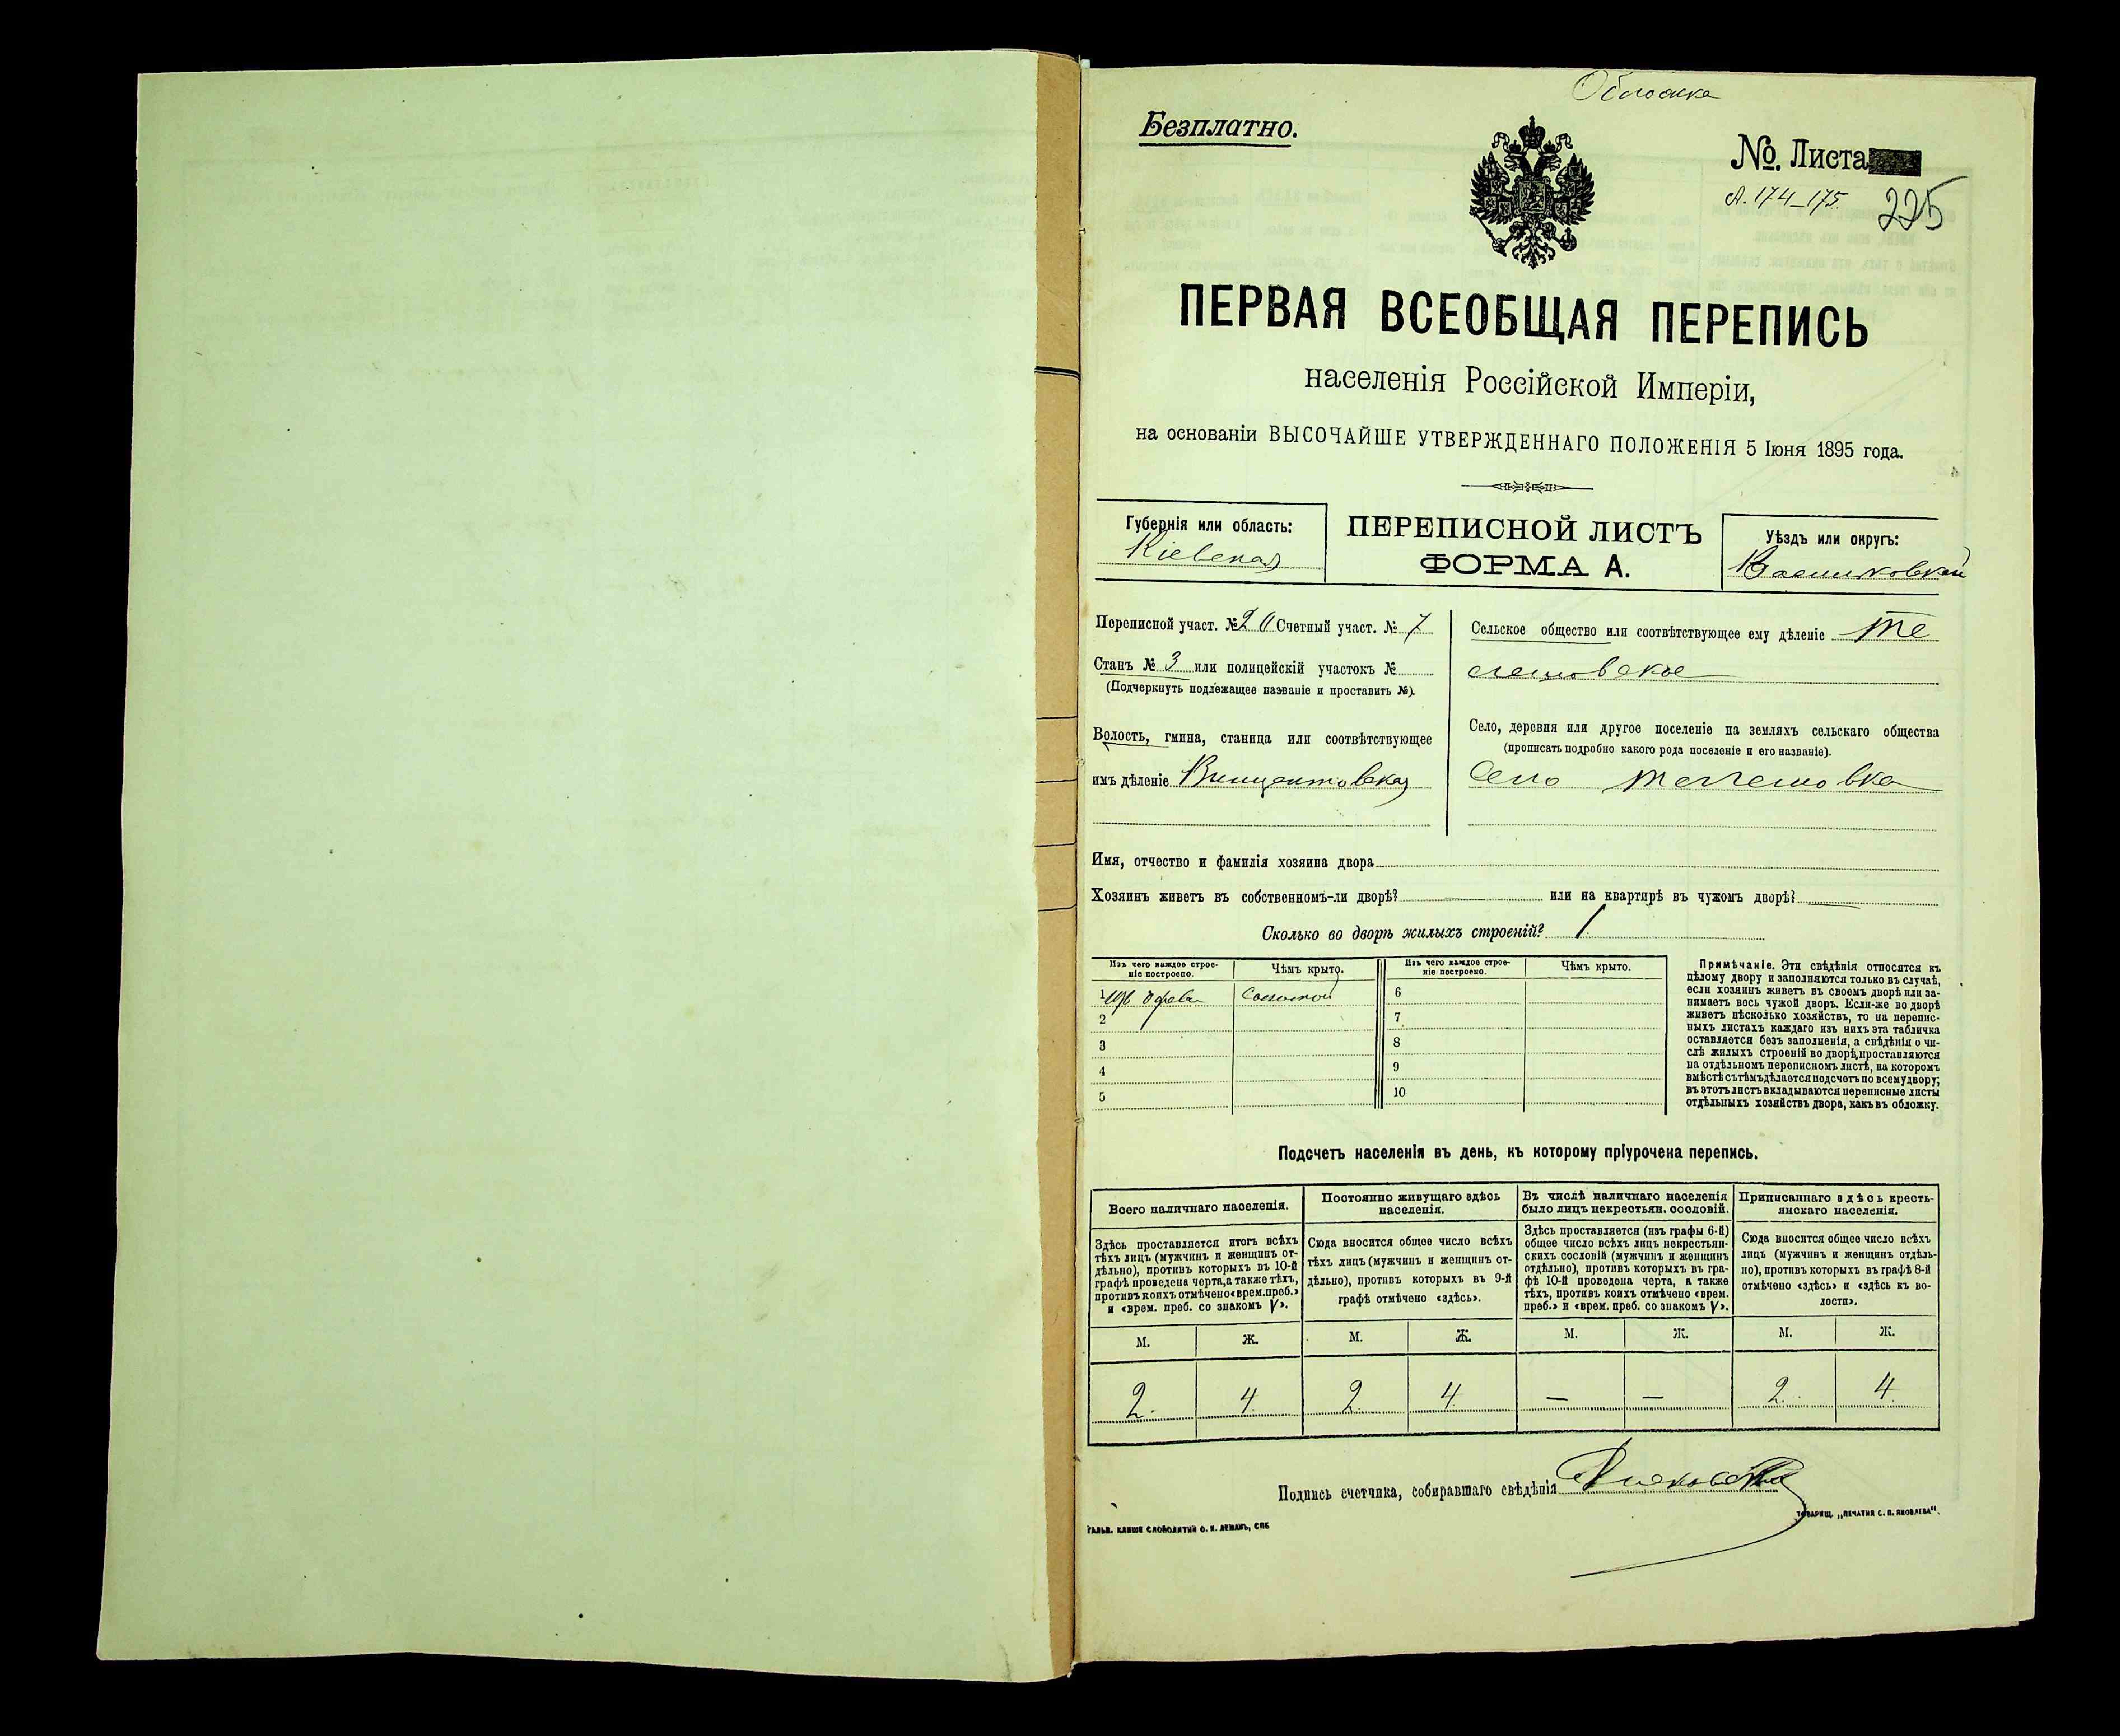 Обложка
Безплатно.
№. Листа
л. 174–175. 225
ПЕРВАЯ ВСЕОБЩАЯ ПЕРЕПИСЬ
населенія Россійской Имперіи,
на основаніи ВЫСОЧАЙШЕ УТВЕРЖДЕННАГО ПОЛОЖЕНІЯ 5 Іюня 1895 года.
Губернія или область:
Кіевская
ПЕРЕПИСНОЙ ЛИСТЪ
ФОРМА А.
Уѣздъ или округъ:
Васильковскій
Переписной участ. № 20 Счетный участ. № 7
Станъ № 3 или полицейскій участокъ №
(Подчеркнуть подлежащее названіе и проставить №).
Волость, гмина, станица или соотвѣтствующее
имъ дѣленіе Винцентовская
Сельское общество или соотвѣтствующее ему дѣленіе Те
лешовское
Село, деревня или другое поселеніе на земляхъ сельскаго общества
(прописать подробно какого рода поселеніе и его названіе).
Село Телешовка
Имя, отчество и фамилія хозяина двора
Хозяинъ живетъ въ собственномъ-ли дворѣ? или на квартирѣ въ чужомъ дворѣ?
Сколько во дворѣ жилыхъ строеній? 1
Изъ чего каждое строе-
ніе построено.
Чѣмъ крыто.
Изъ чего каждое строе-
ніе построено.
Чѣмъ крыто.
1 изъ дерева соломой
2
3
4
5
6
7
8
9
10
Примѣчаніе. Эти свѣдѣнія относятся къ
цѣлому двору и заполняются только въ случаѣ,
если хозяинъ живетъ въ своемъ дворѣ или за-
нимаетъ весь чужой дворъ. Если-же во дворѣ
живетъ нѣсколько хозяйствъ, то на перепис-
ныхъ листахъ каждаго изъ нихъ эта табличка
оставляется безъ заполненія, а свѣдѣнія о чи-
слѣ жилыхъ строеній во дворѣ, проставляются
на отдѣльномъ переписномъ листѣ, на которомъ
вмѣстѣ съ тѣмъ дѣлается подсчетъ по всему двору;
въ этотъ листъ вкладываются переписные листы
отдѣльныхъ хозяйствъ двора, какъ въ обложку.
Подсчетъ населенія въ день, къ которому пріурочена перепись.
Всего наличнаго населенія.
Здѣсь проставляется итогъ всѣхъ
тѣхъ лицъ (мужчинъ и женщинъ от-
дѣльно), противъ которыхъ въ 10-й
графѣ проведена черта, а также тѣхъ,
противъ коихъ отмѣчено «врем. преб.»
и «врем. преб. со знакомъ V».
Постоянно живущаго здѣсь
населенія.
Сюда вносится общее число всѣхъ
тѣхъ лицъ (мужчинъ и женщинъ от-
дѣльно), противъ которыхъ въ 9-й
графѣ отмѣчено «здѣсь».
Въ числѣ наличнаго населенія
было лицъ некрестьян. сословій.
Здѣсь проставляется (изъ графы 6-й)
общее число всѣхъ лицъ некрестьян-
скихъ сословій (мужчинъ и женщинъ
отдѣльно), противъ которыхъ въ гра-
фѣ 10-й проведена черта, а также
тѣхъ, противъ коихъ отмѣчено «врем.
преб.» и «врем. преб. со знакомъ V».
Приписаннаго здѣсь кресть-
янскаго населенія.
Сюда вносится общее число всѣхъ
лицъ (мужчинъ и женщинъ отдѣль-
но), противъ которыхъ въ графѣ 8-й
отмѣчено «здѣсь» и «здѣсь къ во-
лости».
М. Ж. М. Ж. М. Ж. М. Ж.
2. 4. 2. 4. — — 2. 4.
Подпись счетчика, собиравшаго свѣдѣнія
ГАЛЬВ. КЛИШЕ СЛОВОЛИТНИ О. И. ЛЕМАНЪ, СПБ
ТОВАРИЩ. „ПЕЧАТНЯ С. П. ЯКОВЛЕВА".